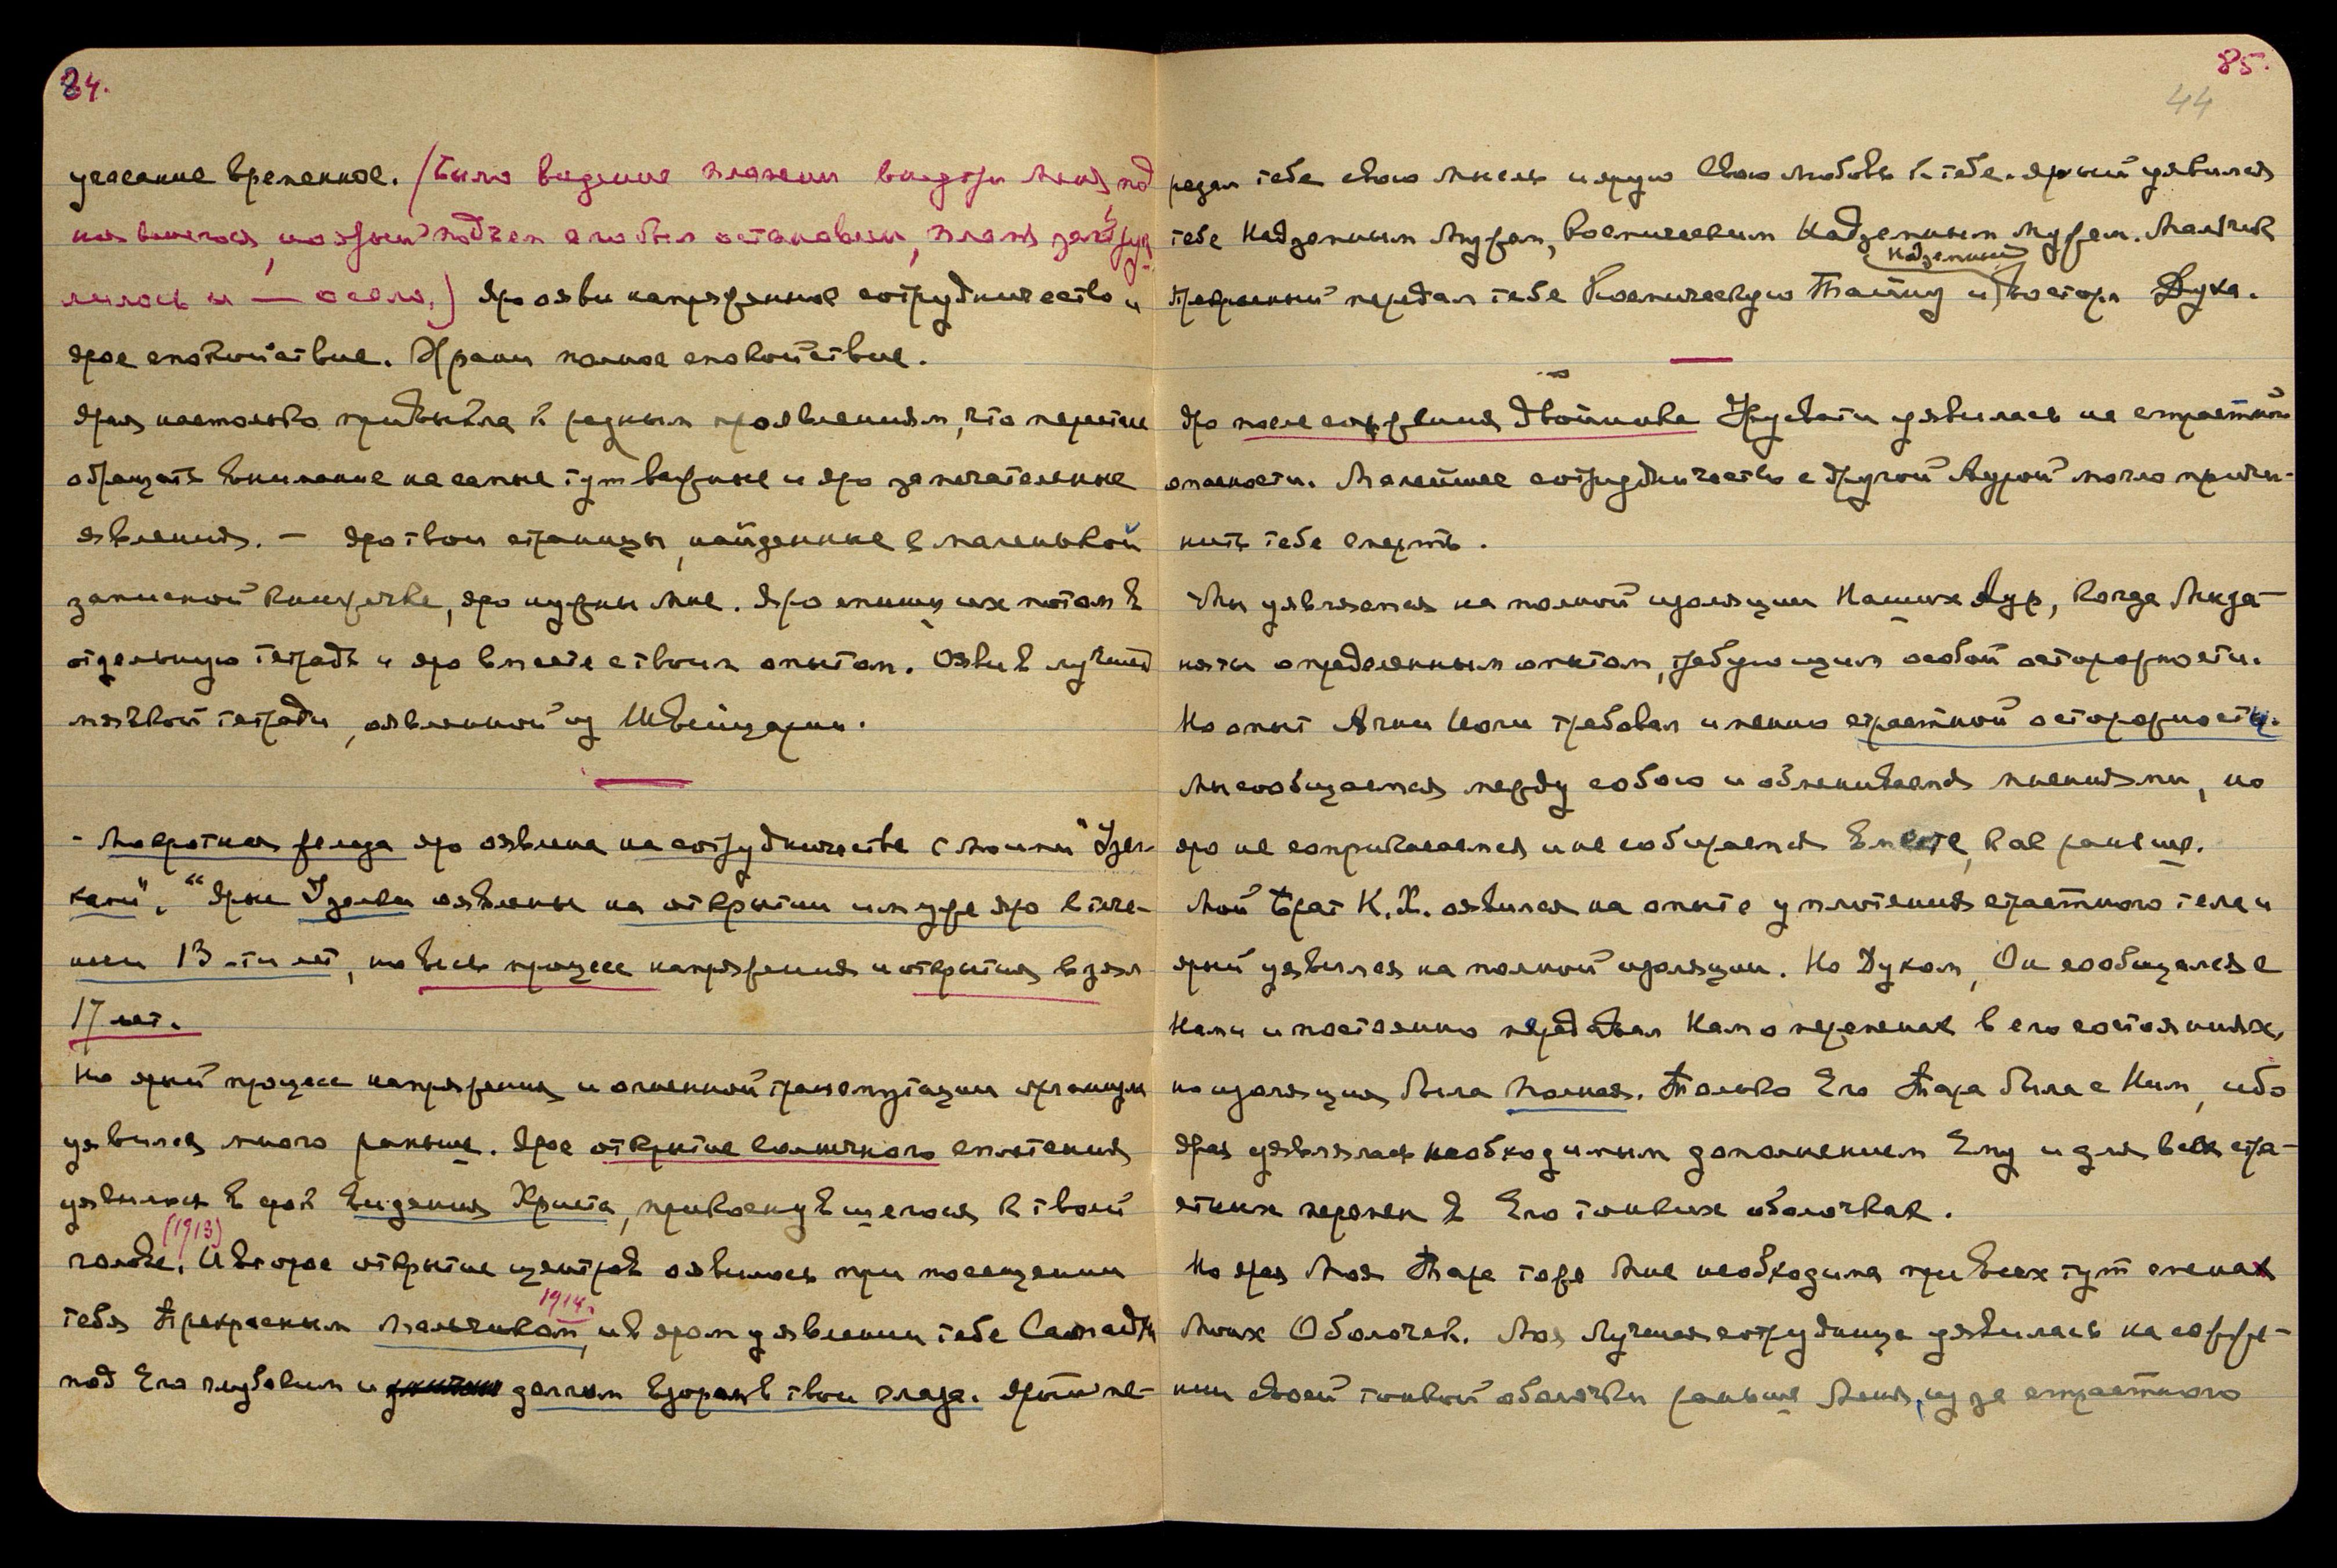 84.
угасание временное. (Было видение пламени внутри меня, под
нявшегося, но ярый подъем его был остановлен, пламя
и — осела.) Яро яви напряженное сотрудничество и
ярое спокойствие. Храни полное спокойствие.
Ярая настолько привыкла к редким проявлениям, что перестала
обращать внимание на самые тут важные и яро замечательные
явления. — Яро твои страницы, найденные в маленькой
записной книжечке, яро нужны Мне. Яро спиши их потом в
отдельную тетрадь и яро вместе с твоим опытом. Яви в лучшей
мягкой тетради, явленной из Швейцарии.
- Мокротная железа яро явлена на сотрудничестве с Моими "Узел-
ками". "Ярые Узелки явлены на открытии их уже яро в тече-
нии 13-ти лет, но весь процесс напряжения и открытия взял
17 лет.
Но ярый процесс напряжения и огненной трансмутации организма
уявился много раньше. Ярое открытие солнечного сплетения
уявилось в срок Видения Христа, прикоснувшегося к твоей
голове. (1913) И второе открытие центров явилось при посещении
тебя Прекрасным Мальчиком, 1914. и в яром уявлении тебе Самадхи
под Его глубоким и долгим взором в твои глаза. Ярый пе-
85.
44
редал тебе свою мысль и ярую Свою любовь к тебе. Ярый уявился
тебе Надземным Мужем, Космическим Надземным Мужем. Мальчик
Прекрасный передал тебе Космическую Тайну и Надземный Восторг Духа.
Яро после сожжения двойника Урусвати уявилась на страстной
опасности. Малейшее сотрудничество с другой Аурой могло причи-
нить тебе смерть.
Мы уявляемся на полной изоляции Наших Аур, когда Мы за-
няты определенным опытом, требующим особой осторожности.
Но опыт Агни Йоги требовал именно страстной осторожности.
Мы сообщаемся между собою и обмениваемся мнениями, но
яро не соприкасаемся и не собираемся вместе, как раньше.
Мой Брат К.Х. явился на опыте уплотнения страстного тела и
ярый уявился на полной изоляции. Но Духом, Он сообщался с
Нами и постоянно передавал Нам о переменах в его состояниях,
но изоляция была полная. Только Его Тара была с Ним, ибо
ярая уявлялась необходимым дополнением Ему и для всех стра-
стных перемен в Его тонких оболочках.
Но ярая Моя Тара тоже Мне необходима при всех тут сменах
Моих Оболочек. Моя Лучшая сотрудница уявилась на сожже-
нии своей тонкой оболочки раньше Меня, из за страстного